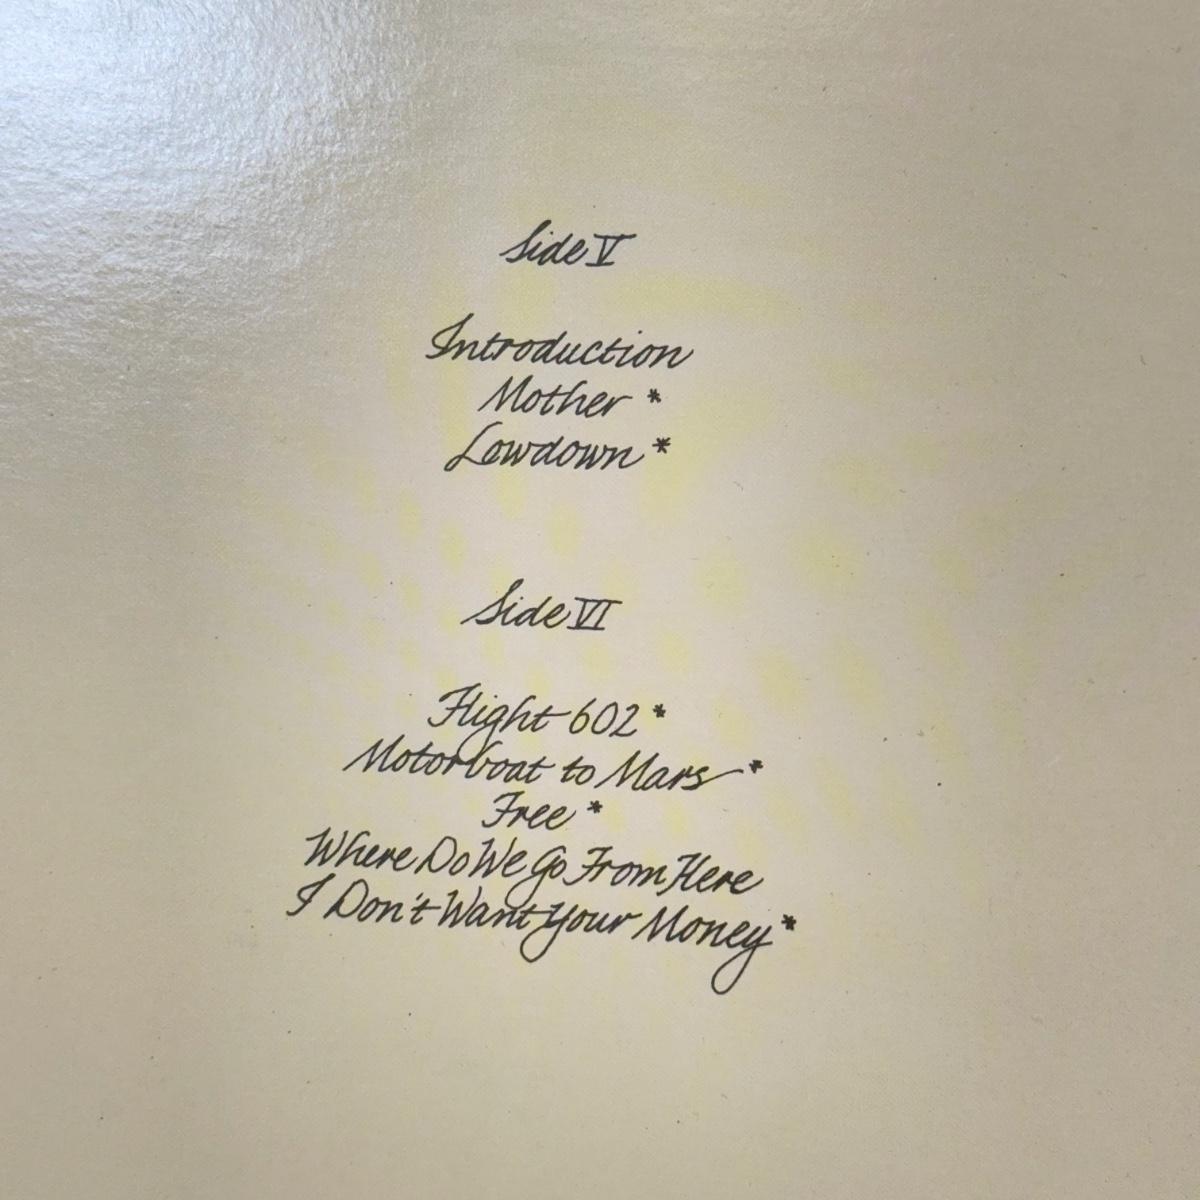 Side V
Introduction
Mother *
Lowdown *
Side VI
Flight 602 *
Motorboat to Mars *
Free *
Where Do We Go From Here
I Don't Want Your Money *